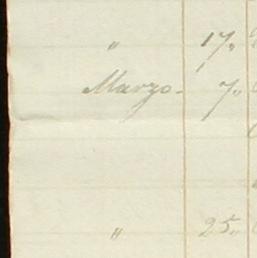 " 17,,
Marzo - 7,,
" 25,,